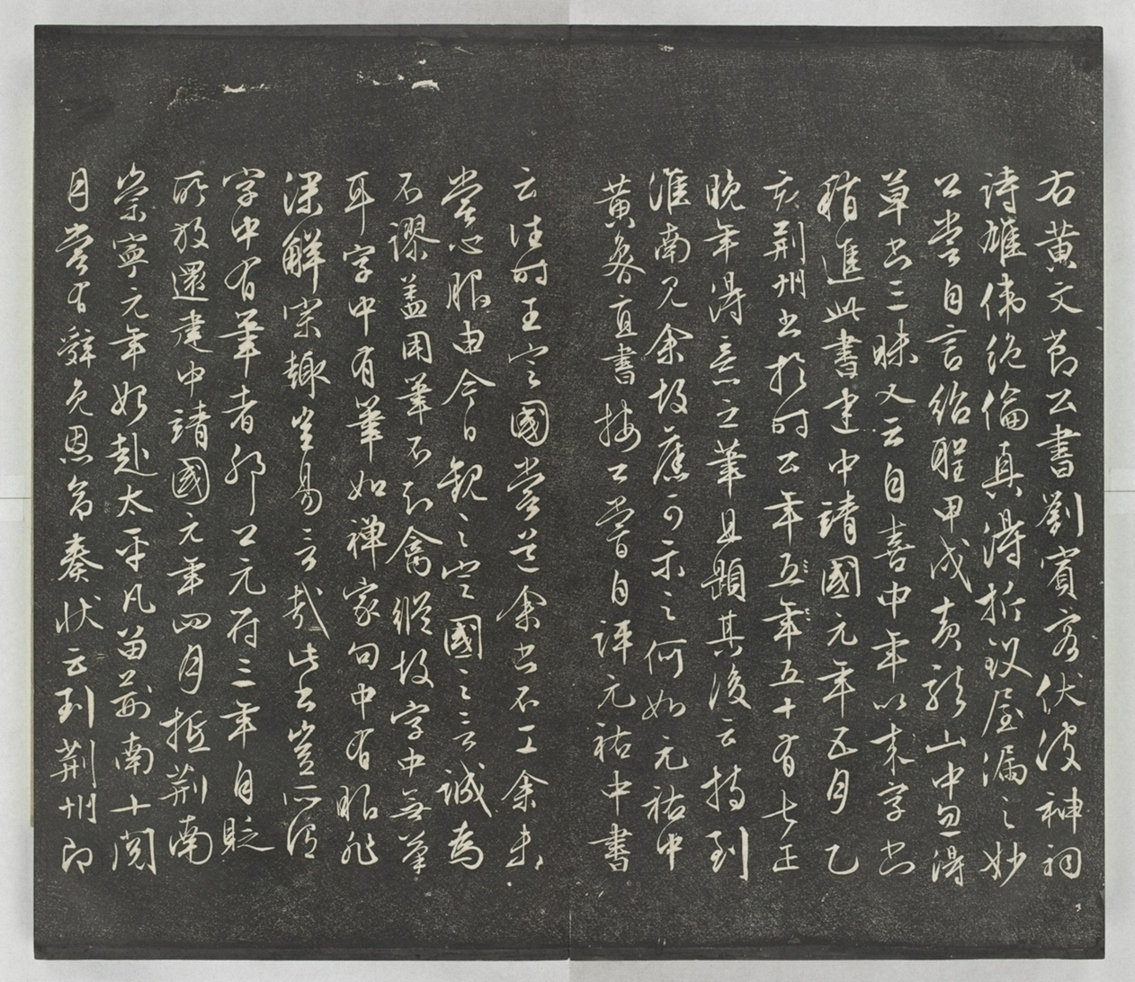 右黃文節公書劉賓客伏波神祠
詩雄偉絕倫真得折釵屋漏之妙
公嘗自言紹聖甲戌黃龍山中忽得
草書三昧又云自喜中年以來字書
稍進此書建中靖國元年五月乙
亥荊州書於時公年五年五十有七正
晚年得意之筆且題其後云持到
淮南見余故舊可示之何如元祐中
黃魯直書按公嘗自評元祐中書
云往時王定國嘗道余書不工余未
嘗心服由今日觀之定國之言誠為
不謬蓋用筆不知禽縱故字中無筆
耳字中有筆如禪家句中有眼非
深解宗趣豈易言哉此書豈所謂
字中有筆者耶公元符三年自貶
所放還建中靖國元年四月抵荊南
崇寧元年始赴太平凡留荊南十閱
月嘗有辭免恩命奏狀云到荊州即